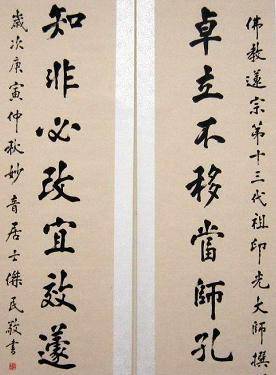 佛教蓮宗第十三代祖印光大師撰
卓立不移當師孔
知非必改宜效蘧
歲次庚寅仲秋妙音居士傑民敬書